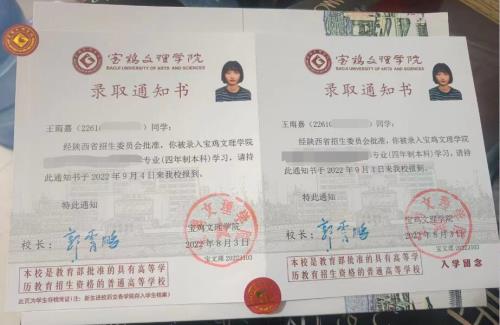 宝鸡文理学院
BAOJI UNIVERSITY OF ARTS AND SCIENCES
录取通知书
王雨嘉（2261 ）同学：
经陕西省招生委员会批准，你被录入宝鸡文理学院
专业（四年制本科）学习，请持
此通知书于 2022 年 9 月 4 日来我校报到。
特此通知
宝鸡文理学院
校长：
2022 年 8 月 3 日
宝文理 20222103
本校是教育部批准的具有高等学
历教育招生资格的普通高等学校
此页为学生存档凭证（注：新生进校后交各学院存入学生档案）
宝鸡文理学院
BAOJI UNIVERSITY OF ARTS AND SCIENCES
录取通知书
王雨嘉（2261 ）同学：
经陕西省招生委员会批准，你被录入宝鸡文理学院
专业（四年制本科）学习，请持
此通知书于 2022 年 9 月 4 日来我校报到。
特此通知
宝鸡文理学院
校长：
2022 年 8 月 3 日
宝文理 20222103
本校是教育部批准的具有高等学
历教育招生资格的普通高等学校
入学留念